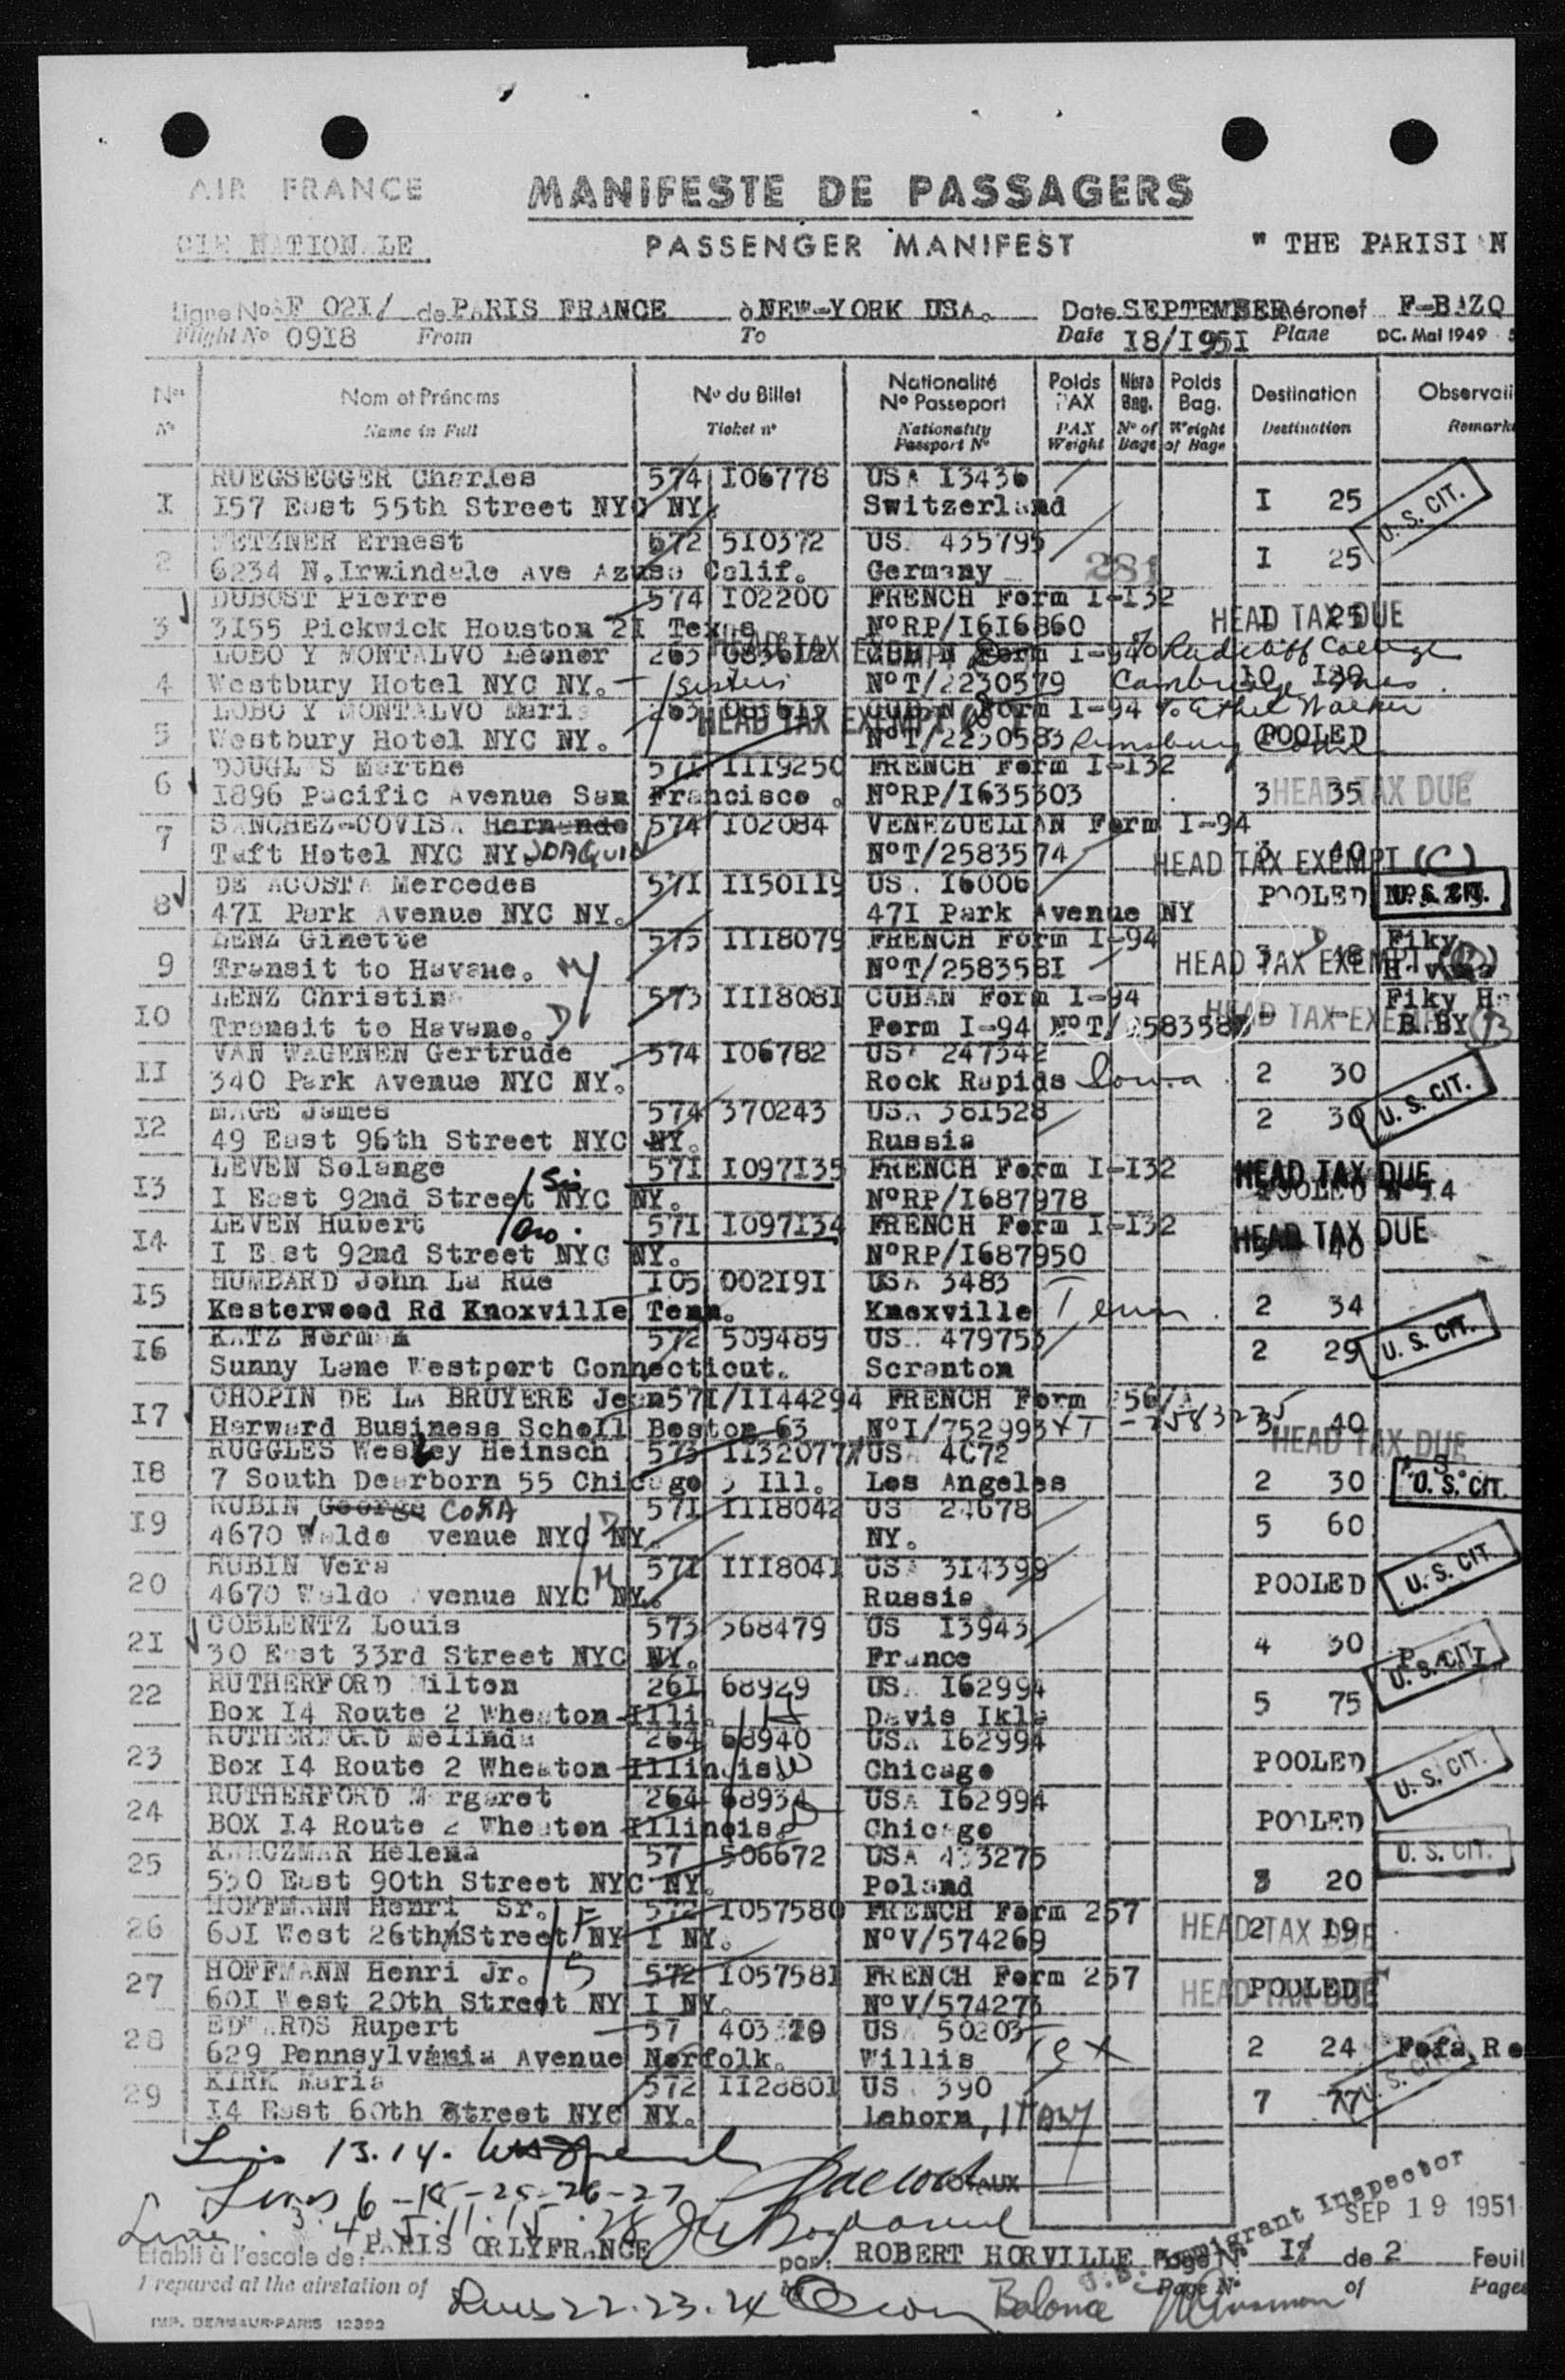 AIR FRANCE
MANIFESTE DE PASSAGERS
CIE NATIONALE
PASSENGER MANIFEST
" THE PARISI N
Ligne No AF 021/ de PARIS FRANCE à NEW-YORK USA. Date SEPTEMBER Aéronef F-BAZQ
Flight No 0918 From To Date I8/I951 Plane DC. Mai 1949
Nos Nom et Prénoms No du Billet Nationalité No Passeport Poids PAX Nbre Bag. Poids Bag. Destination Observati
No Name in Full Ticket no Nationality Passport No PAX Weight No of Bags Weight of Bags Destination Remark
I RUEGSEGGER Charles 574 I06778 USA I3436 I 25 U. S. CIT.
I57 East 55th Street NYC NY. Switzerland
2 Ernest 572 5I0372 US 435795 I 25
6234 N.Irwindale Ave Azusa Calif. Germany 281
3 DUBOST Pierre 574 I02200 FRENCH Form I-I32 I 25 HEAD TAX DUE
3I55 Pickwick Houston 2I Texas NoRP/I6I6860
4 LOBO Y MONTALVO Leonor 263 HEAD TAX EXEMPT Form I-94 to Radcliff College
Westbury Hotel NYC NY. Sisters NoT/2230579 Cambridge Mass.
5 LOBO Y MONTALVO Maria 263 HEAD TAX EXEMPT Form I-94 to Ethel Walker
Westbury Hotel NYC NY. NoT/2230583 POOLED
6 DOUGL S Marthe 57I III9250 FRENCH Form I-I32
I896 Pacific Avenue San Francisco . NoRP/I635303 3 35 HEAD TAX DUE
7 SANCHEZ-COVISA Hernando 574 I02084 VENEZUELIAN Form I-94
Taft Hotel NYC NY. JOAQUIN NoT/2583574 3 40 HEAD TAX EXEMPT (C)
8 DE ACOSTA Mercedes 57I II50II9 US. I6006 POOLED
47I Park Avenue NYC NY. 47I Park Avenue NY
9 LENZ Ginette 573 III8079 FRENCH Form I-94 Fiky
Transit to Havane. M NoT/258358I HEAD TAX EXEMPT
I0 LENZ Christina 573 III808I CUBAN Form I-94 Fiky
Transit to Havane. D Form I-94 HEAD TAX EXEMPT
II VAN WAGENEN Gertrude 574 I06782 USA 247342 2 30
340 Park Avenue NYC NY. Rock Rapids Iowa U. S. CIT.
I2 MAGE James 574 370243 USA 38I528 2 30
49 East 96th Street NYC NY. Russia
I3 LEVEN Solange 57I I097I35 FRENCH Form I-I32 HEAD TAX DUE
I East 92nd Street NYC NY. Sis NoRP/I687978 POOLED No I4
I4 LEVEN Hubert 57I I097I34 FRENCH Form I-I32 HEAD TAX DUE
I E st 92nd Street NYC NY. Bro. NoRP/I687950 40
I5 HUMBARD John La Rue I05 002I9I USA 3483 2 34
Kesterwood Rd Knoxville Tenn. Knoxville Tenn.
I6 KATZ Norman 572 509489 US. 479753 2 29 U. S. CIT.
Sunny Lane Westport Connecticut. Scranton
I7 CHOPIN DE LA BRUYERE Jean 57I/II44294 FRENCH Form 256/A
Harward Business Scholl Boston 63 NoI/752993 3 40 HEAD TAX DUE
I8 RUGGLES Wesley Heinsch 573 II32077 USA 4C72 2 30 U. S. CIT.
7 South Dearborn 55 Chicago 3 Ill. Los Angeles
I9 RUBIN George CORA 57I III8042 US 5 60
4670 Waldo venue NYC NY. D NY.
20 RUBIN Vera 57I III804I USA 3I4399 POOLED U. S. CIT.
4670 Waldo venue NYC NY. M Russia
2I COBLENTZ Louis 573 368479 US I3943 4 30
30 East 33rd Street NYC NY. France U. S. CIT.
22 RUTHERFORD Milton 26I 68929 US. I62994 5 75
Box I4 Route 2 Wheaton Illi. H Davis
23 RUTHERFORD Melinda 264 68940 USA I62994 POOLED
Box I4 Route 2 Wheaton Illinois W Chicago U. S. CIT.
24 RUTHERFORD Margaret 264 68934 USA I62994 POOLED
BOX I4 Route 2 Wheaton Illinois D Chicago
25 Helena 57 506672 USA 433275 3 20 U. S. CIT.
530 East 90th Street NYC NY. Poland
26 HOFFMANN Henri Sr. F 572 I057580 FRENCH Form 257
60I West 26th Street NY I NY. NoV/574269 2 I9 HEAD TAX DUE
27 HOFFMANN Henri Jr. S 572 I05758I FRENCH Form 257 POOLED
60I West 20th Street NY I NY. NoV/574273 HEAD TAX DUE
28 EDWARDS Rupert 57 US 50203 2 24
629 Pennsylvania Avenue Norfolk. Willis Tex U. S. CIT.
29 KIRK Maria 572 II2880I US 390 7 77
I4 East 60th Street NYC NY. Leborn, ITALY
Lines 13.14.
Lines 6 -18-25-26-27
Line 3. 4. 5. 11. 15. 28
TOTAUX
Immigrant Inspector
SEP 19 1951
Etabli à l'escale de: PARIS ORLY FRANCE par: ROBERT HORVILLE Page No I de 2 Feuil
Prepared at the airstation of by Page No of Pages
Lines 22.23.24 Balance
IMP. DERMAUR-PARIS 12392